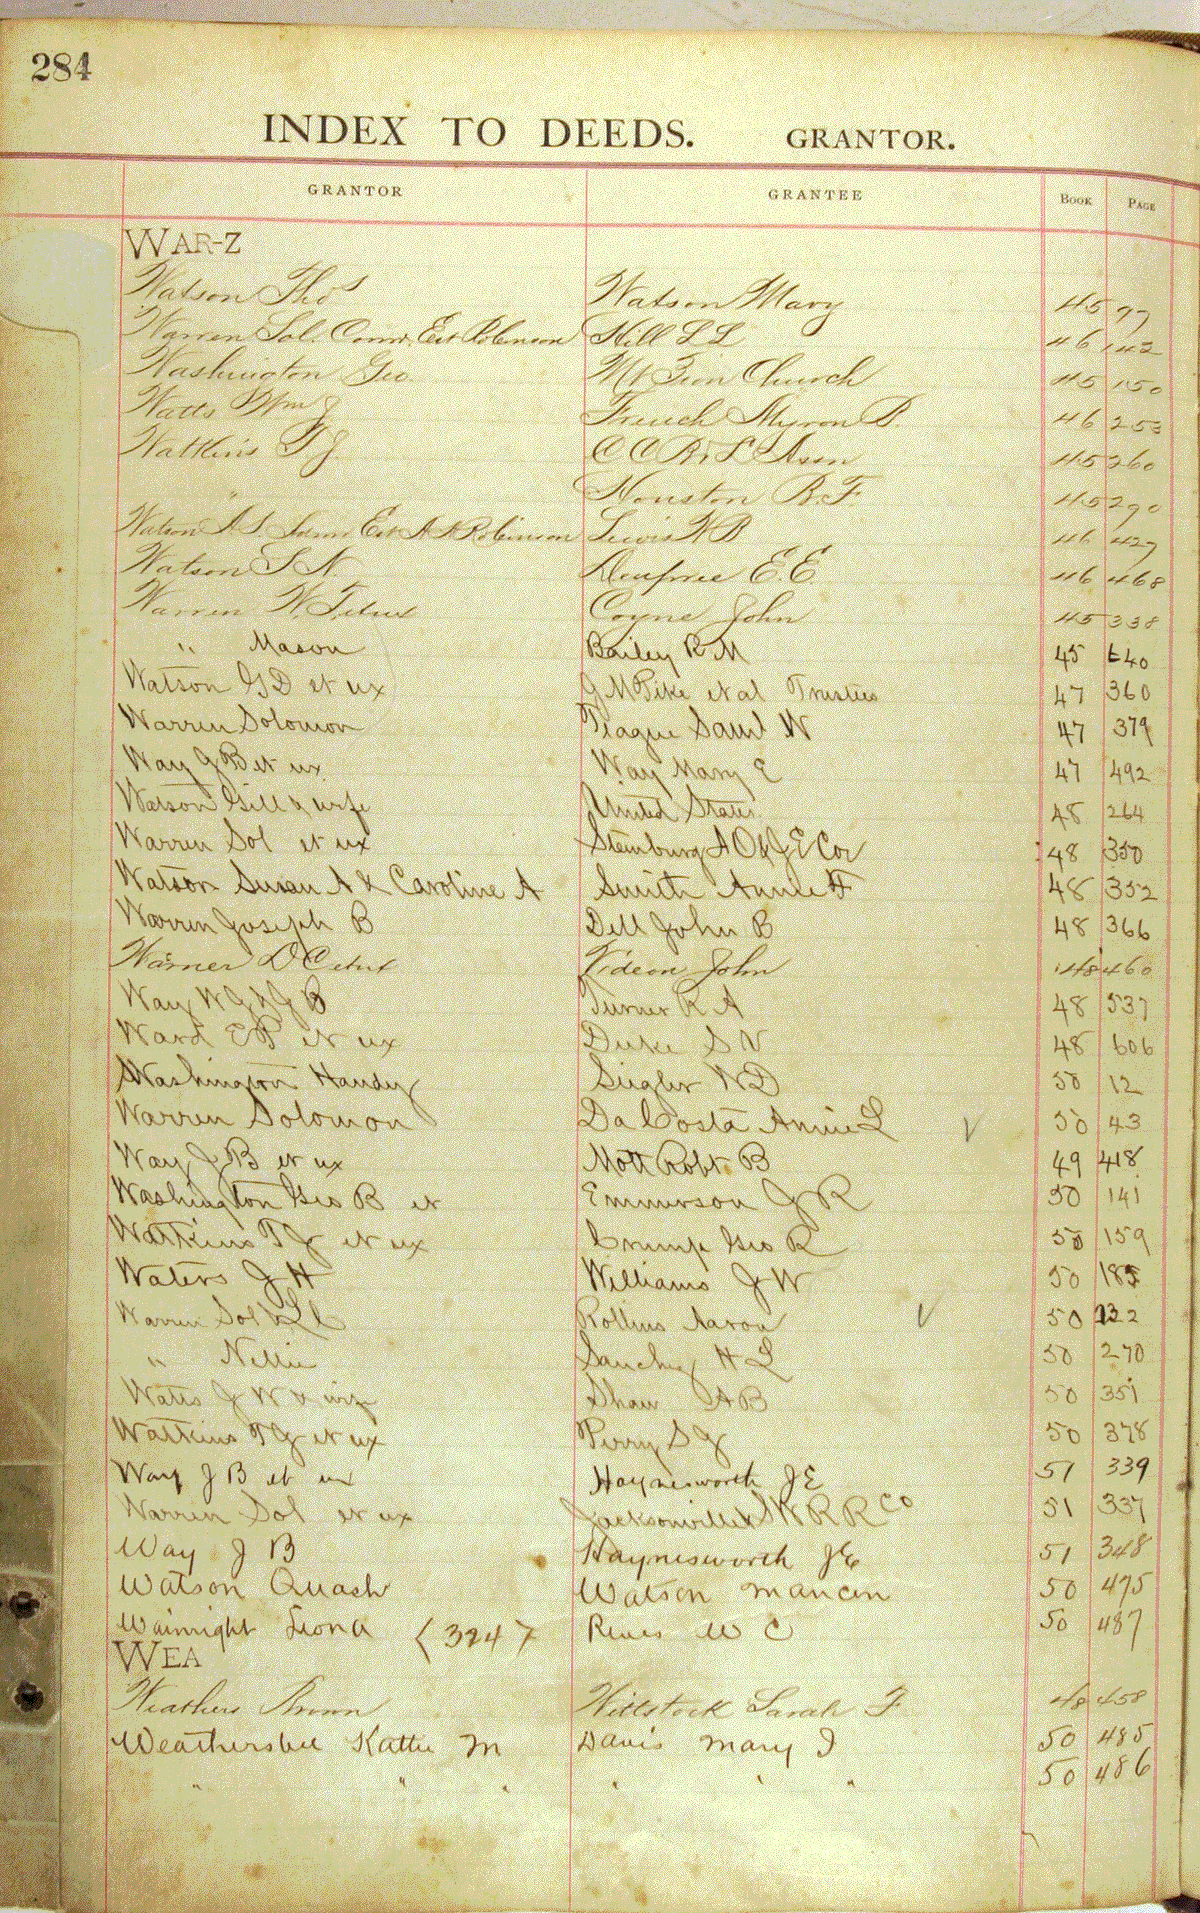 284
INDEX TO DEEDS. GRANTOR.
GRANTOR GRANTEE BOOK PAGE
WAR-Z
Watson Thos Watson Mary 45 97
Warren Sol. Robinson Hill L L 46 142
Washington Geo. Mt Zion Church 45 150
Watts Wm J French Myron 46 253
Watkins T J C C 45 260
Houston R. F. 45 290
Watson A S Robinson Lewis W B 46 427
Watson S N. Denfree E. E 46 468
Warren W. F. et ux Coyne John 45 338
" Mason Bailey R M 45 640
Watson G D et ux G M Pike et al Trustees 47 360
Warren Solomon Plague Saml W 47 379
Way J B et ux Way Mary E 47 492
Watson Gill & wife United States 48 264
Warren Sol et ux 48 350
Watson Susan A & Caroline A Smith Annie F 48 352
Warren Joseph B Dell John B 48 366
Warner D C et ux Videon John 48 460
Way W G & J B Turner R A 48 537
Ward E P et ux Duke S V 48 606
Washington Handy Zeigler W D 50 12
Warren Solomon DaCosta Annie L 50 43
Way J B et ux Mott Robt B 49 418
Washington Geo B et Emmerson J R 50 141
Watkins T J et ux Crump Geo R 50 159
Waters J H Williams J W 50 185
Warren Sol Rollins Aaron 50 222
" Nellie Sanchez H L 50 270
Watts J W & wife Shaw A B 50 351
Watkins T J et ux Perry S J 50 378
Way J B et ux Haynesworth J E 51 339
Warren Sol et ux Jacksonville & S W R R Co 51 337
Way J B Haynesworth J E 51 348
Watson Quash Watson Mancin 50 475
Wainright Leona (324) Rives W C 50 487
WEA
Weathers Wittstock Sarah F 48 458
Weathersbee Kattie M Davis Mary I 50 485
" " " " " " 50 486